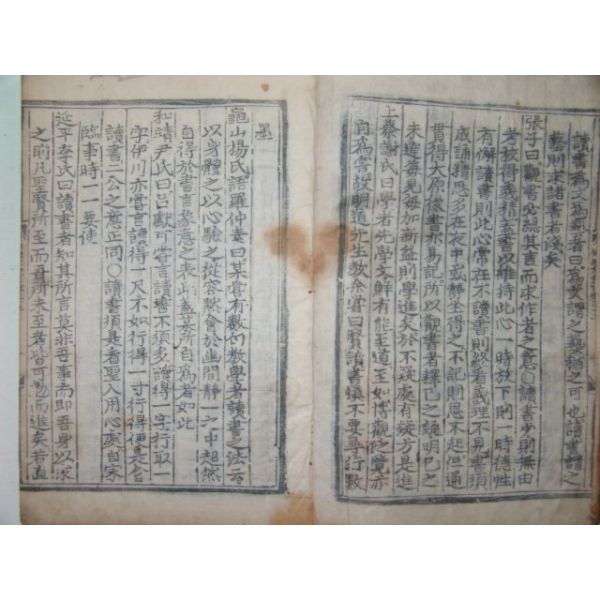 讀書為文為藝者曰為文謂之藝猶之可也讀書謂之
藝則求諸書者淺矣
張子曰觀書必總其言而求作者之意○讀書少則無由
考校得義精盖書以維持此心一時放下則一時德性
有懈讀書則此心常在不讀書則終看義理不見書須
成誦精思多在夜中或靜坐得之不記則思不起但通
貫得大原後書亦易記所以觀書者釋己之疑明己之
未達每見每加新益則學進矣於不疑處有疑方是進
上蔡謝氏曰學者先學文鮮有能至道至如博觀泛覽亦
自為害故明道先生教余嘗曰賢讀書慎不要尋行數
墨
龜山楊氏語羅仲素曰某嘗有數句教學者讀書之法云
以身體之以心驗之從容默會於幽閒靜一之中超然
自得於書言象意之表此盖某所自為者如此
和靖尹氏曰呂獻可嘗言讀書不須多讀得一字行取一
字伊川亦嘗言讀得一尺不如行得一寸行得便是會
讀書二公之意正同○讀書須是看聖人用心處自家
臨事時一一要使
延平李氏曰讀書者知其所言莫非吾事而即吾身以求
之則凡聖賢所至而吾所未至者皆可勉而進矣若直